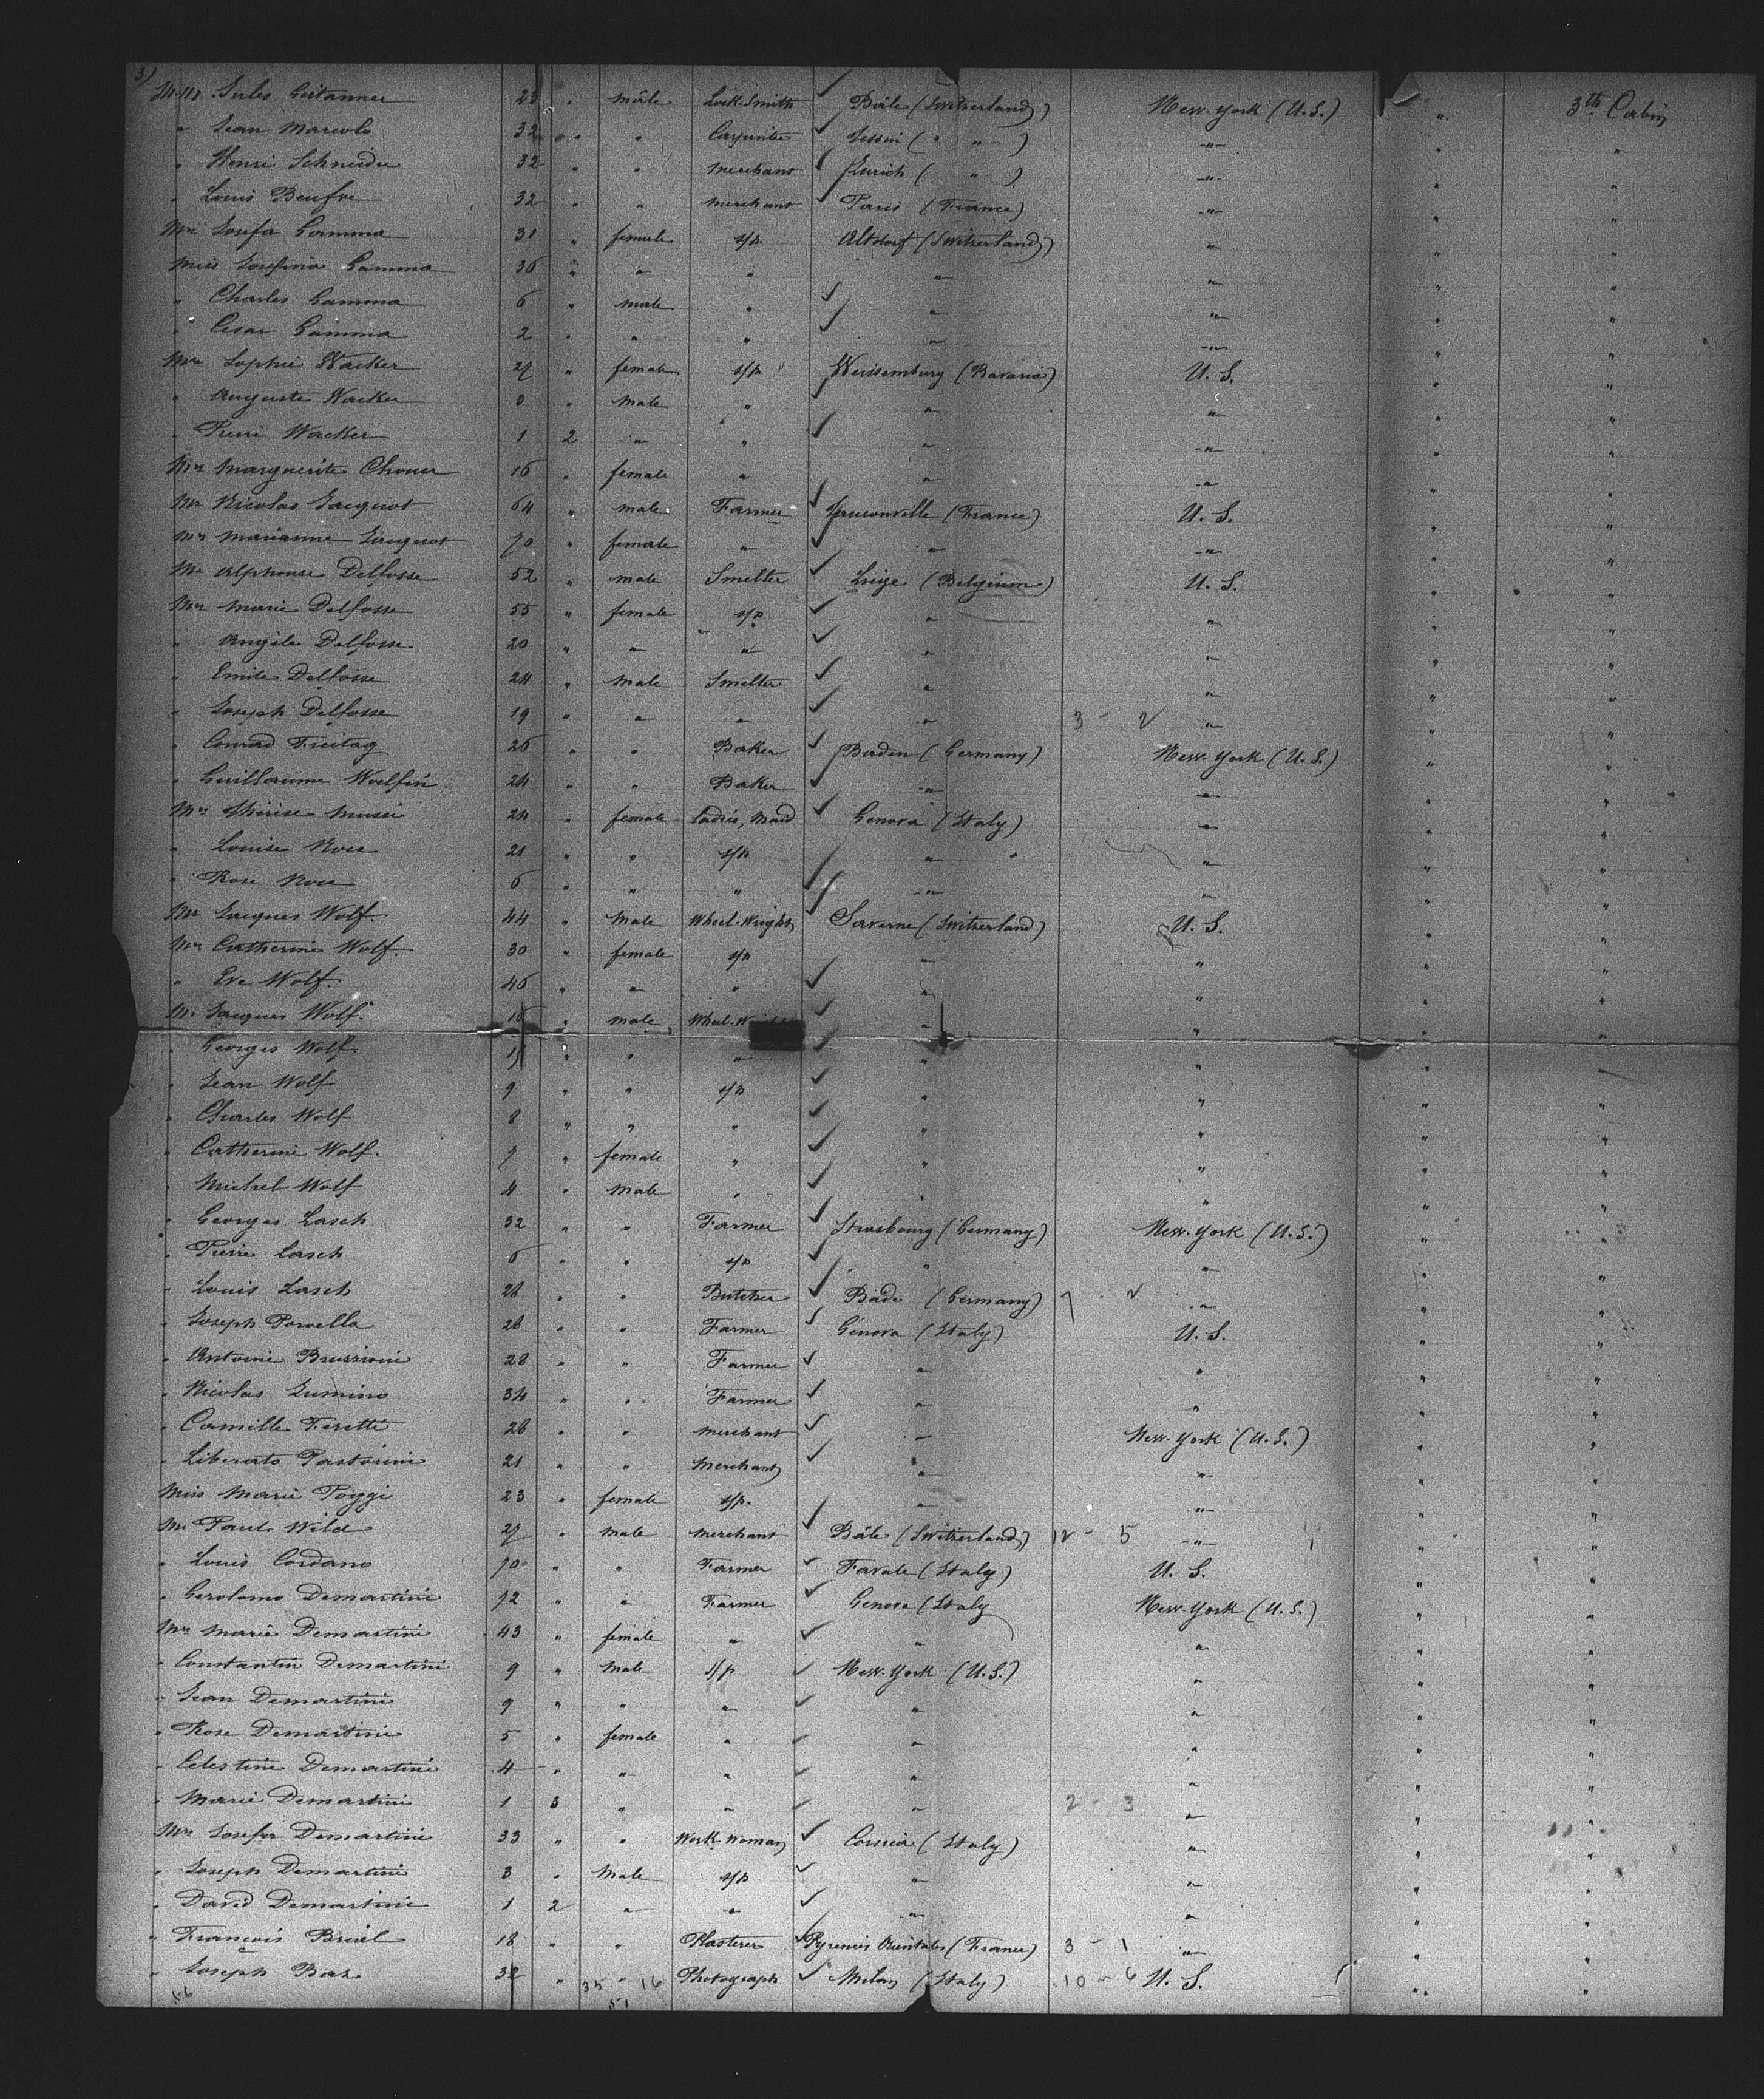 3)
M. Mr. Jules Gertanner 23 " mâle Lock-Smith Bâle (Switzerland) New-York (U.S.) " 3th Cabin
" Jean Marcolo 32 " " Carpenter Tessin ( " " ) " " "
" Henri Schneider 32 " " merchant Zurich ( " ) " " "
" Louis Beufve 32 " " merchant Paris (France) " " "
Mrs Josefa Gamma 31 " female s/p Altdorf (Switzerland) " " "
Miss Josefina Gamma 36 " " " " " " "
" Charles Gamma 6 " male " " " " "
" Cesar Gamma 2 " " " " " " "
Mrs Sophie Wacker 27 " female s/p Weissemburg (Bavaria) U. S. " "
" Auguste Wacker 3 " male " " " " "
" Pierre Wacker 1 2 " " " " " "
Mrs Marguerite 16 " female " " " " "
Mr Nicolas Jacquot 64 " male Farmer (France) U. S. " "
Mrs Marianne Jacquot 70 " female " " " " "
Mr Alphonse Delfosse 52 " male Smelter Liége (Belgium) U. S. " "
Mrs Marie Delfosse 55 " female s/p " " " "
" Angèle Delfosse 20 " " " " " " "
" Emile Delfosse 24 " male Smelter " " " "
" Joseph Delfosse 19 " " " " 3 - 2 " " "
" Conrad Freitag 25 " " Baker Baden (Germany) New-York (U.S.) " "
" Guillaume Woelflin 24 " " Baker " " " "
Mrs Thérèse Mussi 24 " female Ladies, Maid Genova (Italy) " " "
" Louise 21 " " s/p " " " "
" Rose 6 " " " " " " "
Mr Jacques Wolf. 44 " male Wheel-Wright Saverne (Switzerland) U. S. " "
Mrs Catherine Wolf. 30 " female s/p " " " "
" Eve Wolf. 46 " " " " " " "
Mr Jacques Wolf. 16 " male " " " "
" Georges Wolf " " " " " " "
" Jean Wolf 9 " " s/p " " " "
" Charles Wolf 8 " " " " " " "
" Catherine Wolf. 7 " female " " " " "
" Michel Wolf 4 " male " " " " "
" Georges Lasch 32 " " Farmer Strasbourg (Germany) New-York (U.S.) " "
" Pierre Lasch 6 " " s/p " " " "
" Louis Lasch 28 " " Butcher Bade (Germany) 7 2 " " "
" Joseph Porcella 26 " " Farmer Genova (Italy) U. S. " "
" Antoine Brussioni 28 " " Farmer " " " "
" Nicolas 34 " " Farmer " " " "
" Camille Feretti 26 " " merchant " New-York (U.S.) " "
" Liberato Pastorini 21 " " merchant " " " "
Miss Marie Poggi 23 " female s/p. " " " "
Mr Paul Wild 27 " male merchant Bâle (Switzerland) 12 - 5 " " "
" Louis Cordano 70 " " Farmer Favale (Italy) U. S. " "
" Gerolamo Demartini 72 " " Farmer Genova (Italy New-York (U.S.) " "
Mrs Marie Demartini 43 " female " " " " "
" Constantin Demartini 9 " male s/p New-York (U.S.) " " "
" Jean Demartini 9 " " " " " " "
" Rose Demartini 5 " female " " " " "
" Celestine Demartini 4 " " " " " " "
" Marie Demartini 1 3 " " " 2 - 3 " " "
Mrs Josefa Demartini 33 " " Work Woman (Italy) " " "
" Joseph Demartini 3 " male s/p " " " "
" David Demartini 1 2 " " " " " "
" François Briel 18 " " Plasterer Pyrenees Orientales (France) 3 - 1 " " "
" Joseph Bas 32 " 35 " 16 Photograph Milan (Italy) 10 - 6 U. S. " "
56 51